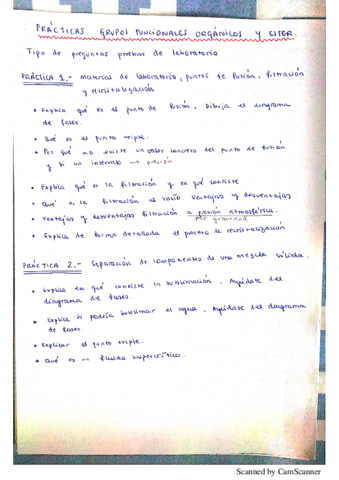 PRÁCTICAS GRUPOS FUNCIONALES ORGÁNICOS Y ESTER.
Tipo de preguntas pruebas de laboratorio
PRÁCTICA 1.- Materias de laboratorio, puntos de fusión, filtración
y recristalización
• Explica qué es el punto de fusión. Dibuja el diagrama
de fases.
• Qué es el punto triple.
• Por qué no existe un valor concreto del punto de fusión
y si un intervalo → presión
• Explica qué es la filtración y en qué consiste
• Qué es la filtración al vacío. Ventajas y desventajas
• Ventajas y desventajas filtración a presión atmosférica.
por gravedad
• Explica de forma detallada el proceso de recristalización
PRÁCTICA 2.- Separación de componentes de una mezcla sólida.
• Explica en qué consiste la sublimación. Ayúdate del
diagrama de fases.
• Explica si podría sublimar el agua. Ayúdate del diagrama
de fases.
• Explicar el punto triple.
• Qué es un fluido supercrítico.
Scanned by CamScanner